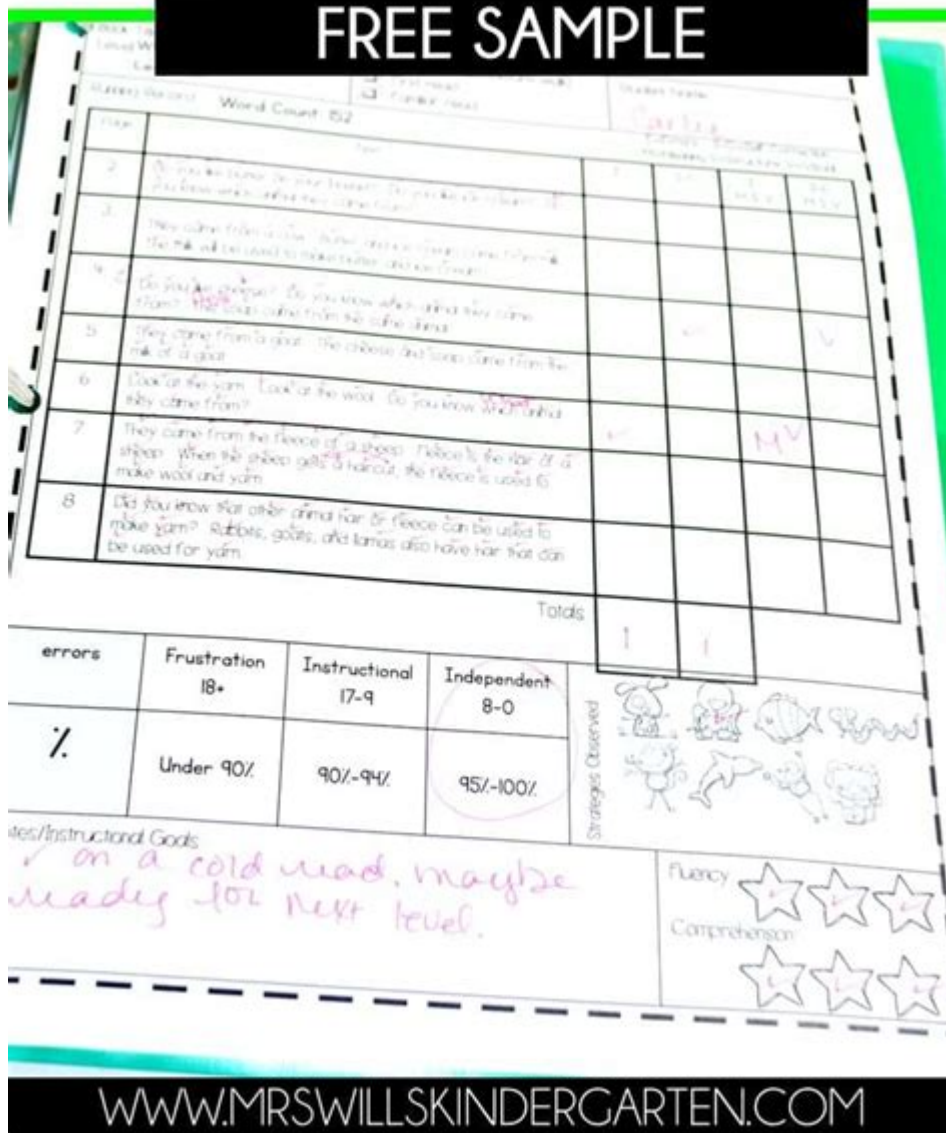 FREE SAMPLE
Word Count: 152
2
3
They came from a cow.
the milk will be used to make butter and ice cream.
4
Do you like cheese? Do you know which animal they came
from? The soap came from the same animal.
5
They came from a goat. The cheese and soap came from the
milk of a goat.
6
Look at the yarn. Look at the wool. Do you know which animal
they came from?
7
They came from the fleece of a sheep. Fleece is the hair of a
sheep. When the sheep gets a haircut, the fleece is used to
make wool and yarn.
8
Did you know that other animal hair or fleece can be used to
make yarn? Rabbits, goats, and llamas also have hair that can
be used for yarn.
M V
V
Totals
1 1
errors
Frustration
18+
Instructional
17-9
Independent
8-0
%
Under 90%
90%-94%
95%-100%
Strategies Observed
tes/Instructional Goals
✓ on a cold read. maybe
ready for next level.
Fluency
Comprehension
WWW.MRSWILLSKINDERGARTEN.COM